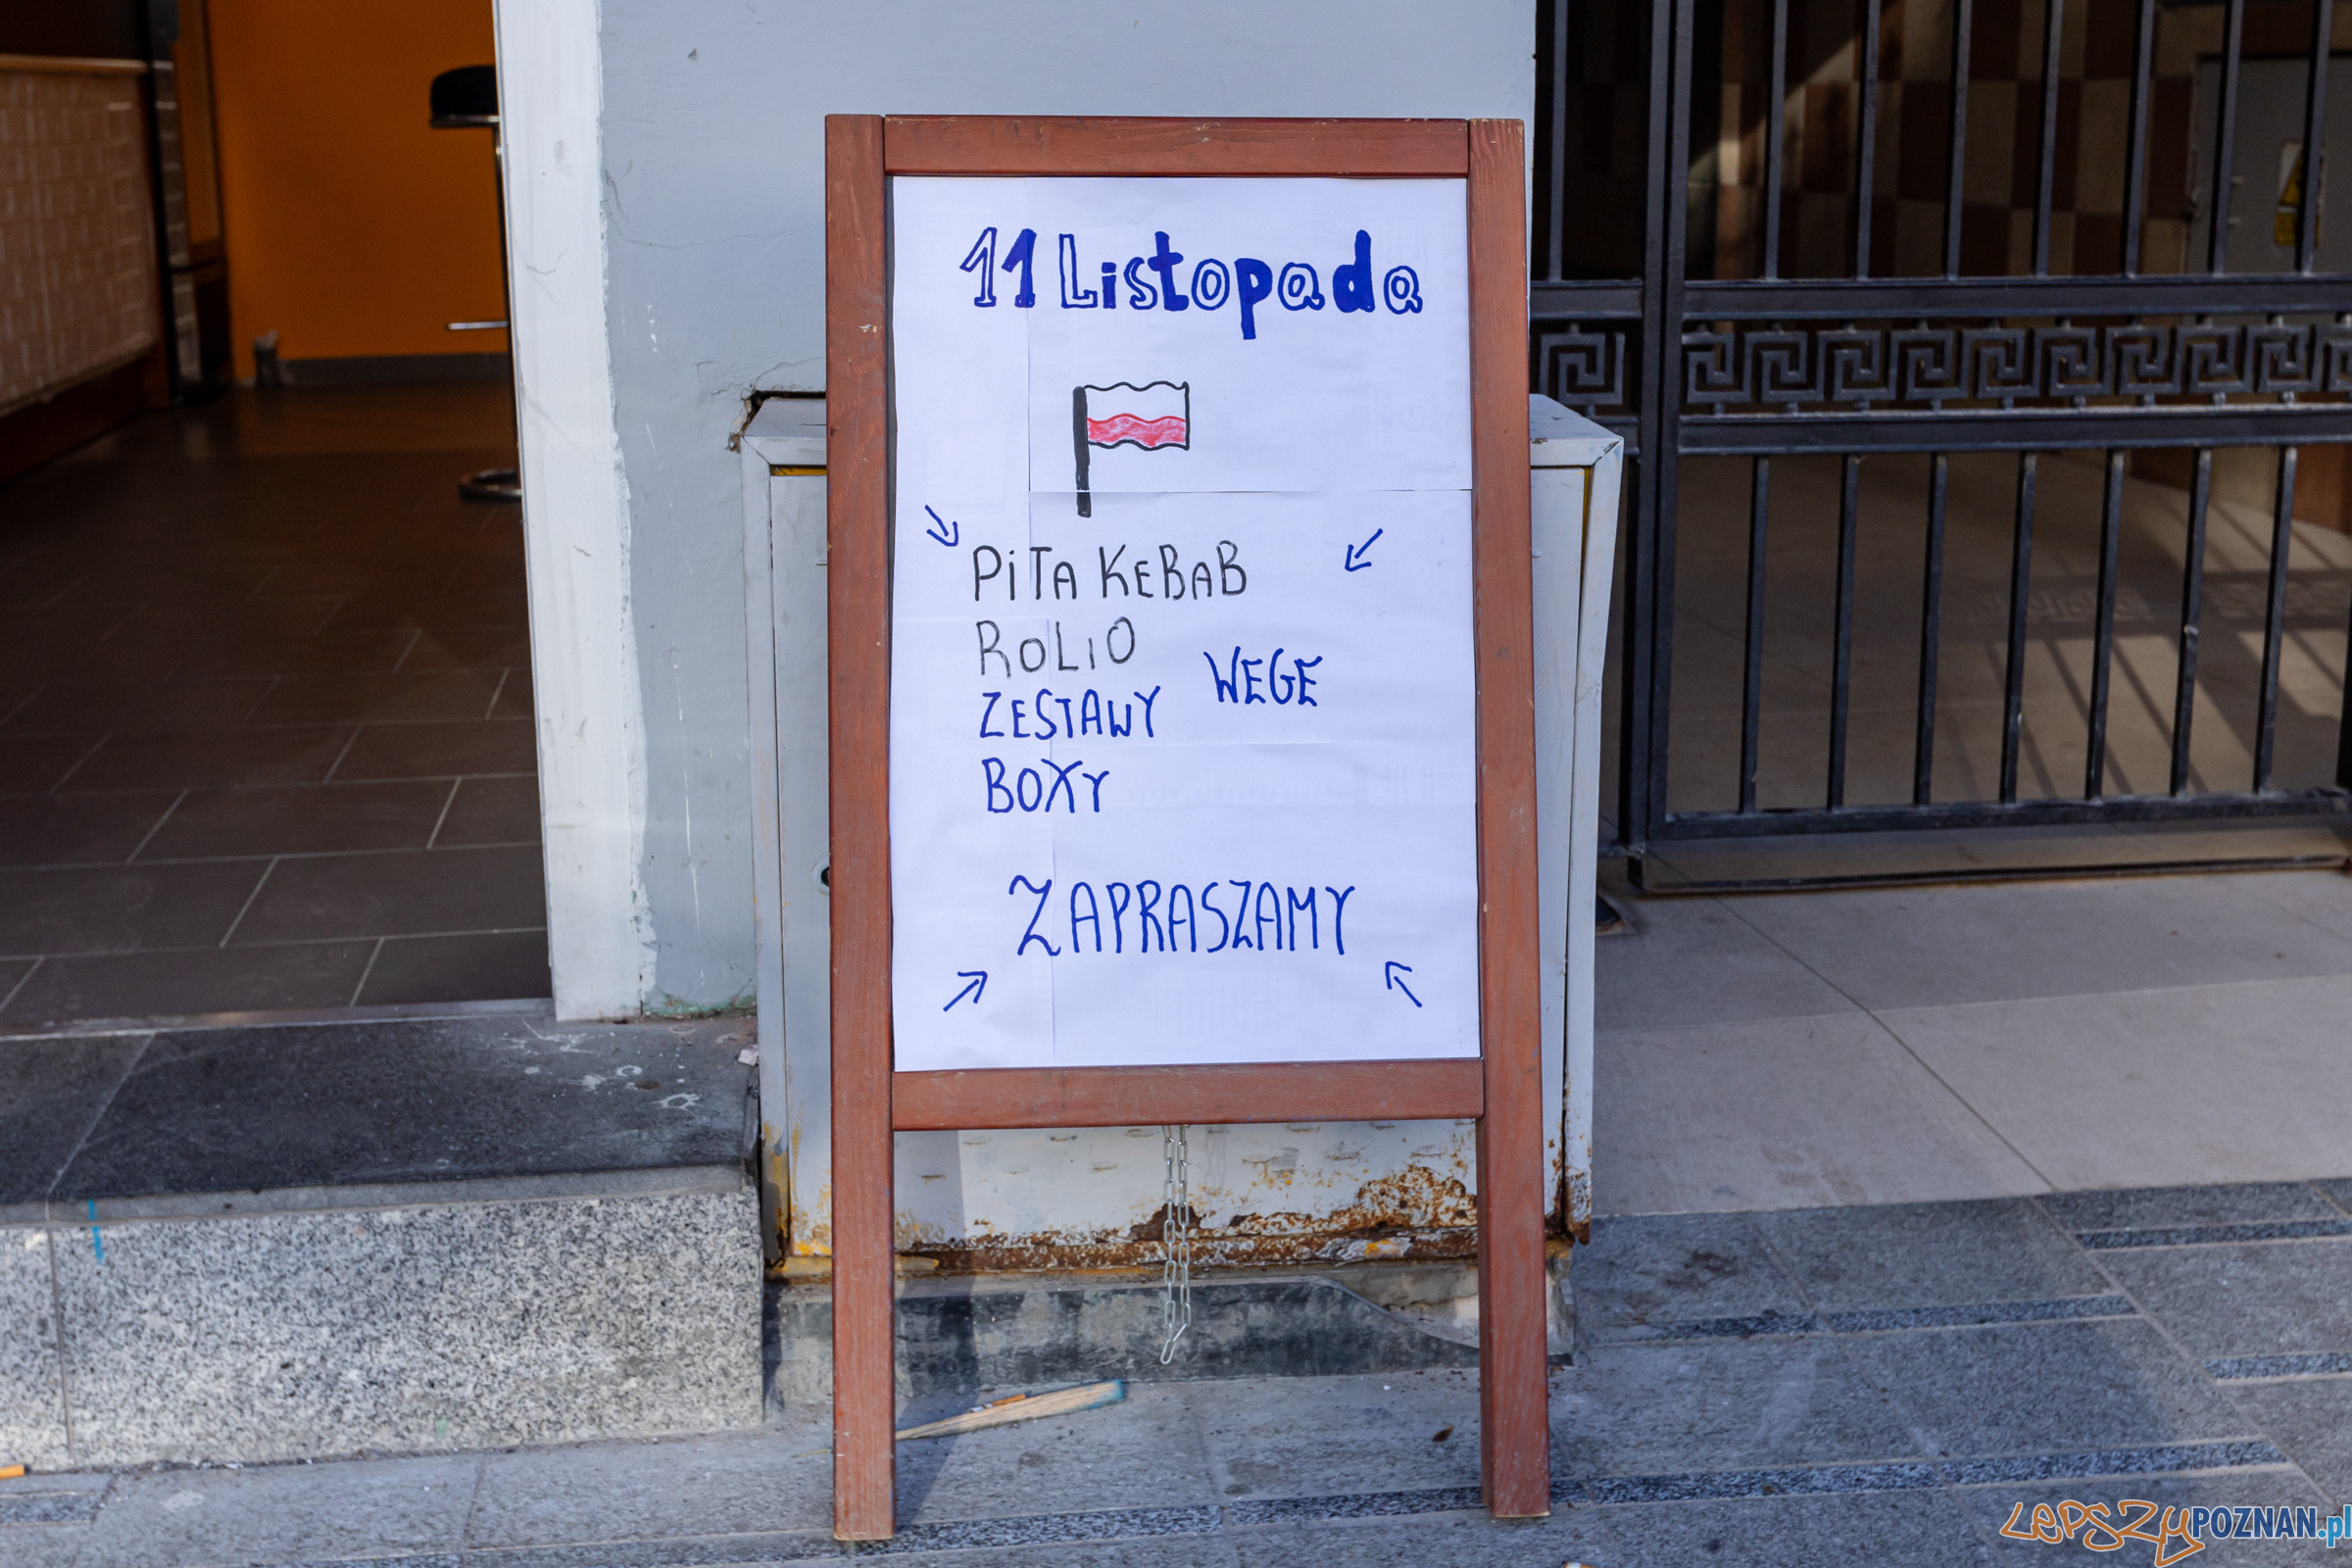 11 Listopada
PiTA KEBAB
ROLiO
WEGE
ZESTAWY
BOXY
ZAPRASZAMY
LEPSZYPOZNAN.pl